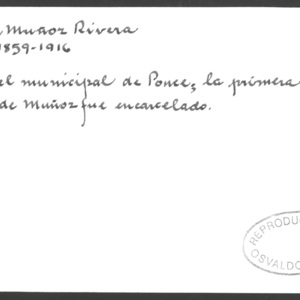 Muñoz Rivera
1859-1916
el municipal de Ponce; la primera
de Muñoz fue encarcelado.
REPRODU
OSVALDO